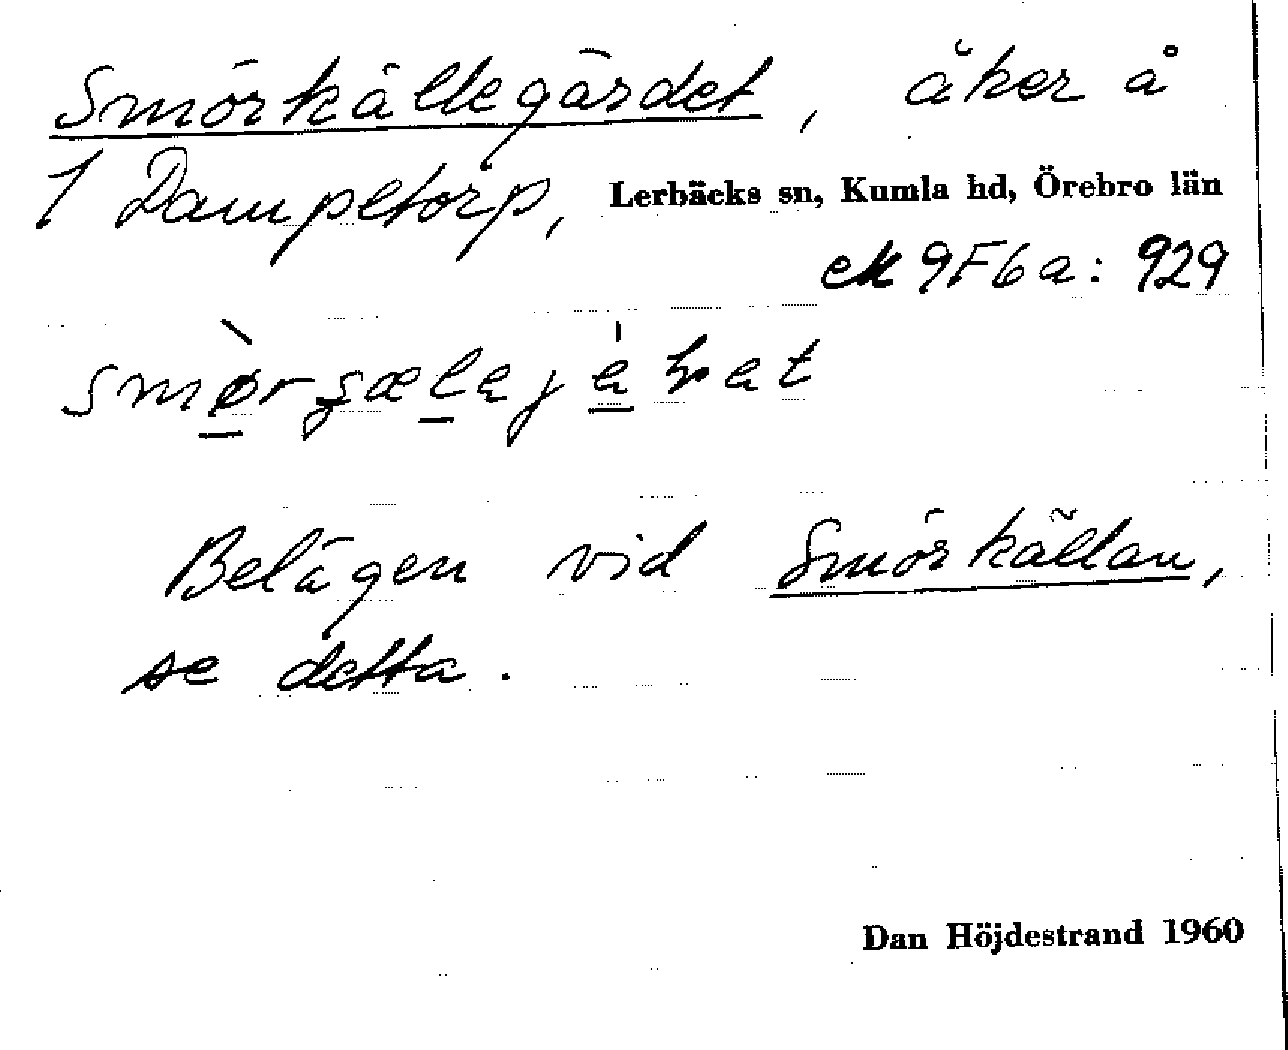 Smörkällegärdet, åker å
1 Dampetorp, Lerbäcks sn, Kumla hd, Örebro län
ek 9F6a: 929
Belägen vid Smörkällan,
se detta.
Dan Höjdestrand 1960